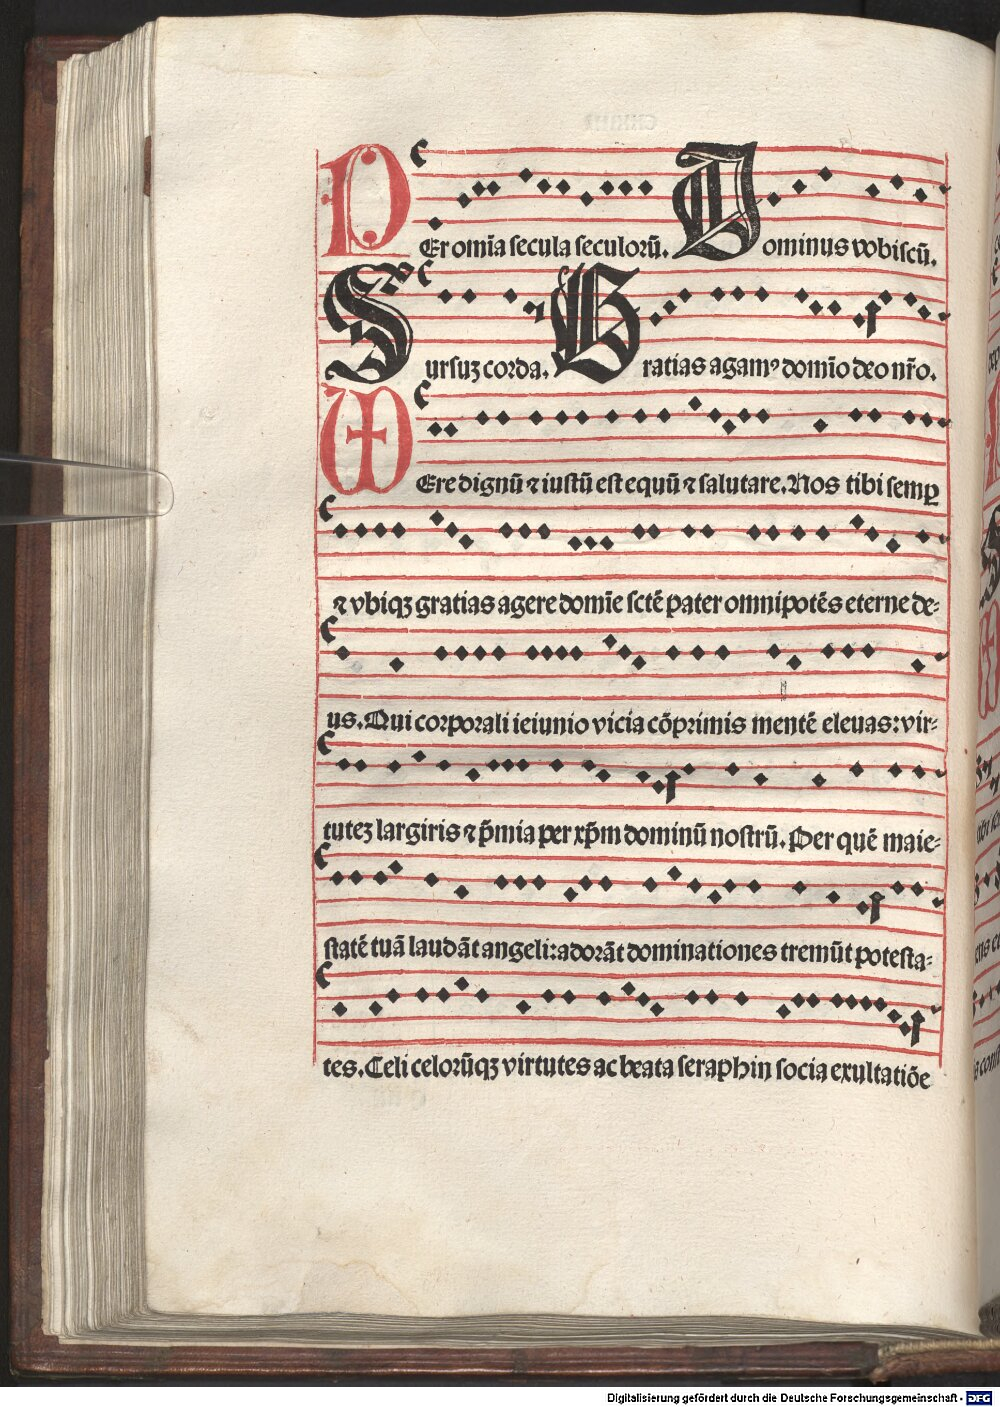 PEr om̄ia secula seculorū. Dominus vobiscū.
Sursuꝫ corda. Gratias agamꝰ domīo deo nr̄o.
VEre dignū ⁊ iustū est equū ⁊ salutare. Nos tibi semꝑ
⁊ vbiqꝫ gratias agere domīe sctē pater omnipotēs eterne de⸗
us. Qui corporali ieiunio vicia cōprimis mentē eleuas: vir⸗
tuteꝫ largiris ⁊ p̄mia per xp̄m dominū nostrū. Per quē maie⸗
statē tuā laudāt angeli: adorāt dominationes tremūt potesta⸗
tes. Celi celorūqꝫ virtutes ac beata seraphin socia exultatiōe
Digitalisierung gefördert durch die Deutsche Forschungsgemeinschaft - DFG